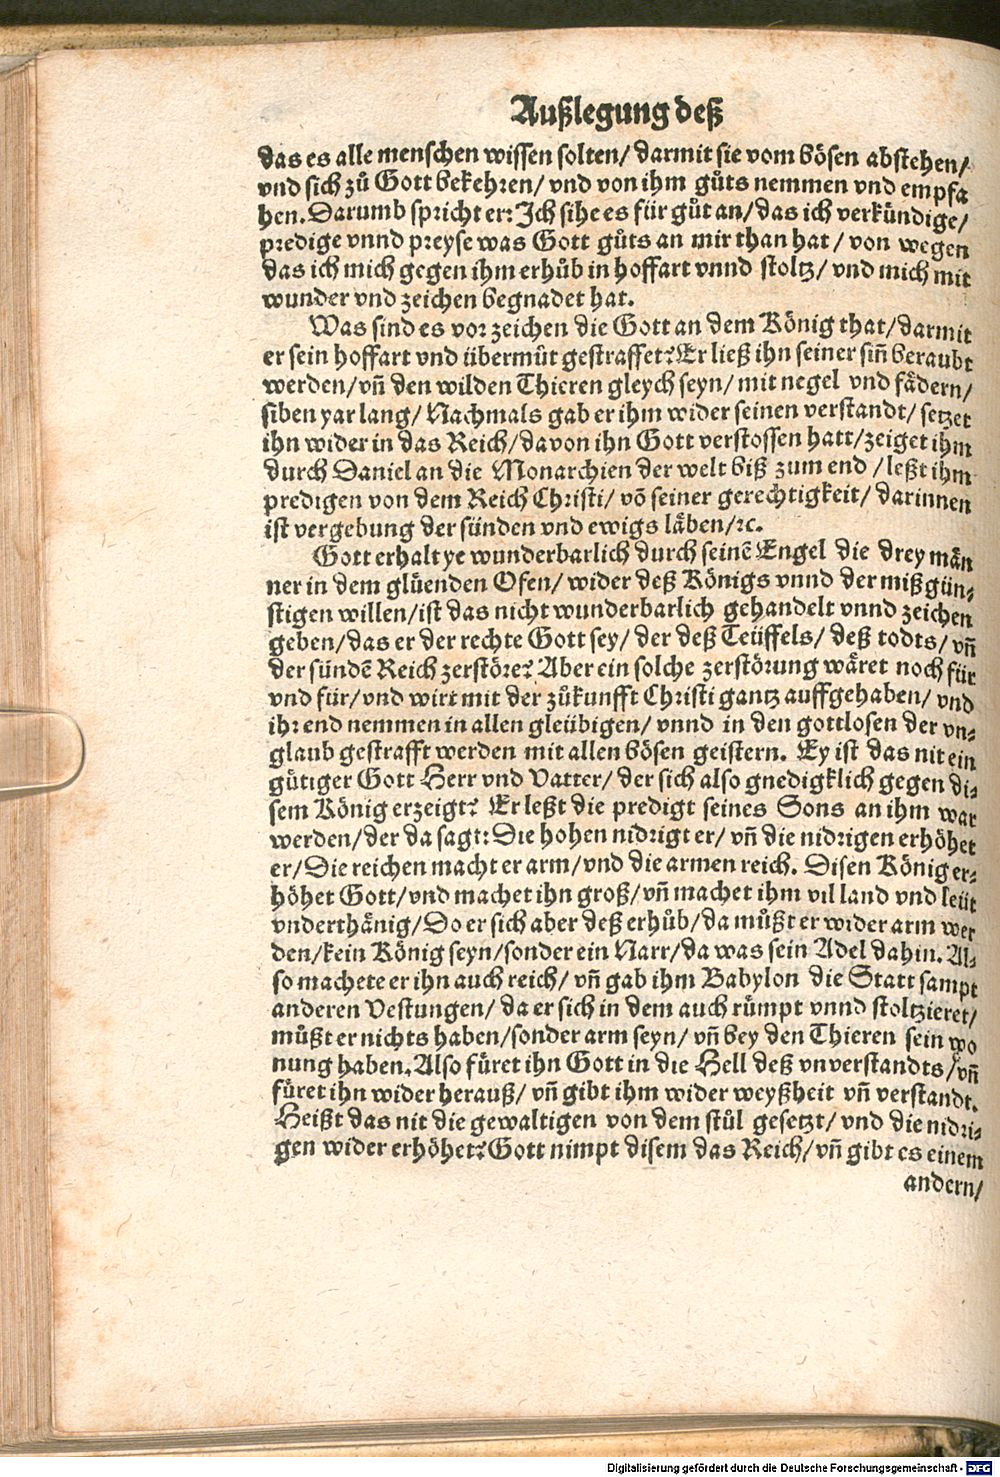 Außlegung deß
das es alle menschen wissen solten/ darmit sie vom bösen abstehen/
vnd sich zů Gott bekehren/ vnd von ihm gůts nemmen vnd empfa
hen. Darumb spricht er: Ich sihe es für gůt an/ das ich verkündige/
predige vnnd preyse was Gott gůts an mir than hat/ von wegen
das ich mich gegen ihm erhůb in hoffart vnnd stoltz/ vnd mich mit
wunder vnd zeichen begnadet hat.
Was sind es vor zeichen die Gott an dem König that/ darmit
er sein hoffart vnd übermůt gestraffet? Er ließ ihn seiner siñ beraubt
werden/ vñ den wilden Thieren gleych seyn/ mit negel vnd fådern/
siben yar lang/ Nachmals gab er ihm wider seinen verstandt/ setzet
ihn wider in das Reich/ davon ihn Gott verstossen hatt/ zeiget ihm
durch Daniel an die Monarchien der welt biß zum end/ leßt ihm
predigen von dem Reich Christi/ võ seiner gerechtigkeit/ darinnen
ist vergebung der sünden vnd ewigs låben/ ꝛc.
Gott erhalt ye wunderbarlich durch seinẽ Engel die drey mån
ner in dem glüenden Ofen/ wider deß Königs vnnd der mißgün⸗
stigen willen/ ist das nicht wunderbarlich gehandelt vnnd zeichen
geben/ das er der rechte Gott sey/ der deß Teüffels/ deß todts/ vñ
der sündẽ Reich zerstöre? Aber ein solche zerstörung wåret noch für
vnd für/ vnd wirt mit der zůkunfft Christi gantz auffgehaben/ vnd
ihr end nemmen in allen gleübigen/ vnnd in den gottlosen der vn⸗
glaub gestrafft werden mit allen bösen geistern. Ey ist das nit ein
gütiger Gott Herr vnd Vatter/ der sich also gnedigklich gegen di⸗
sem König erzeigt? Er leßt die predigt seines Sons an ihm war
werden/ der da sagt: Die hohen nidrigt er/ vñ die nidrigen erhöhet
er/ Die reichen macht er arm/ vnd die armen reich. Disen König er⸗
höhet Gott/ vnd machet ihn groß/ vñ machet ihm vil land vnd leüt
vnderthånig/ Do er sich aber deß erhůb/ da můßt er wider arm wer
den/ kein König seyn/ sonder ein Narr/ da was sein Adel dahin. Al⸗
so machete er ihn auch reich/ vñ gab ihm Babylon die Statt sampt
anderen Vestungen/ da er sich in dem auch růmpt vnnd stoltzieret/
můßt er nichts haben/ sonder arm seyn/ vñ bey den Thieren sein wo
nung haben. Also füret ihn Gott in die Hell deß vnverstandts/ vñ
füret ihn wider herauß/ vñ gibt ihm wider weyßheit vñ verstandt.
Heißt das nit die gewaltigen von dem stůl gesetzt/ vnd die nidri⸗
gen wider erhöhet? Gott nimpt disem das Reich/ vñ gibt es einem
andern/
Digitalisierung gefördert durch die Deutsche Forschungsgemeinschaft - DFG